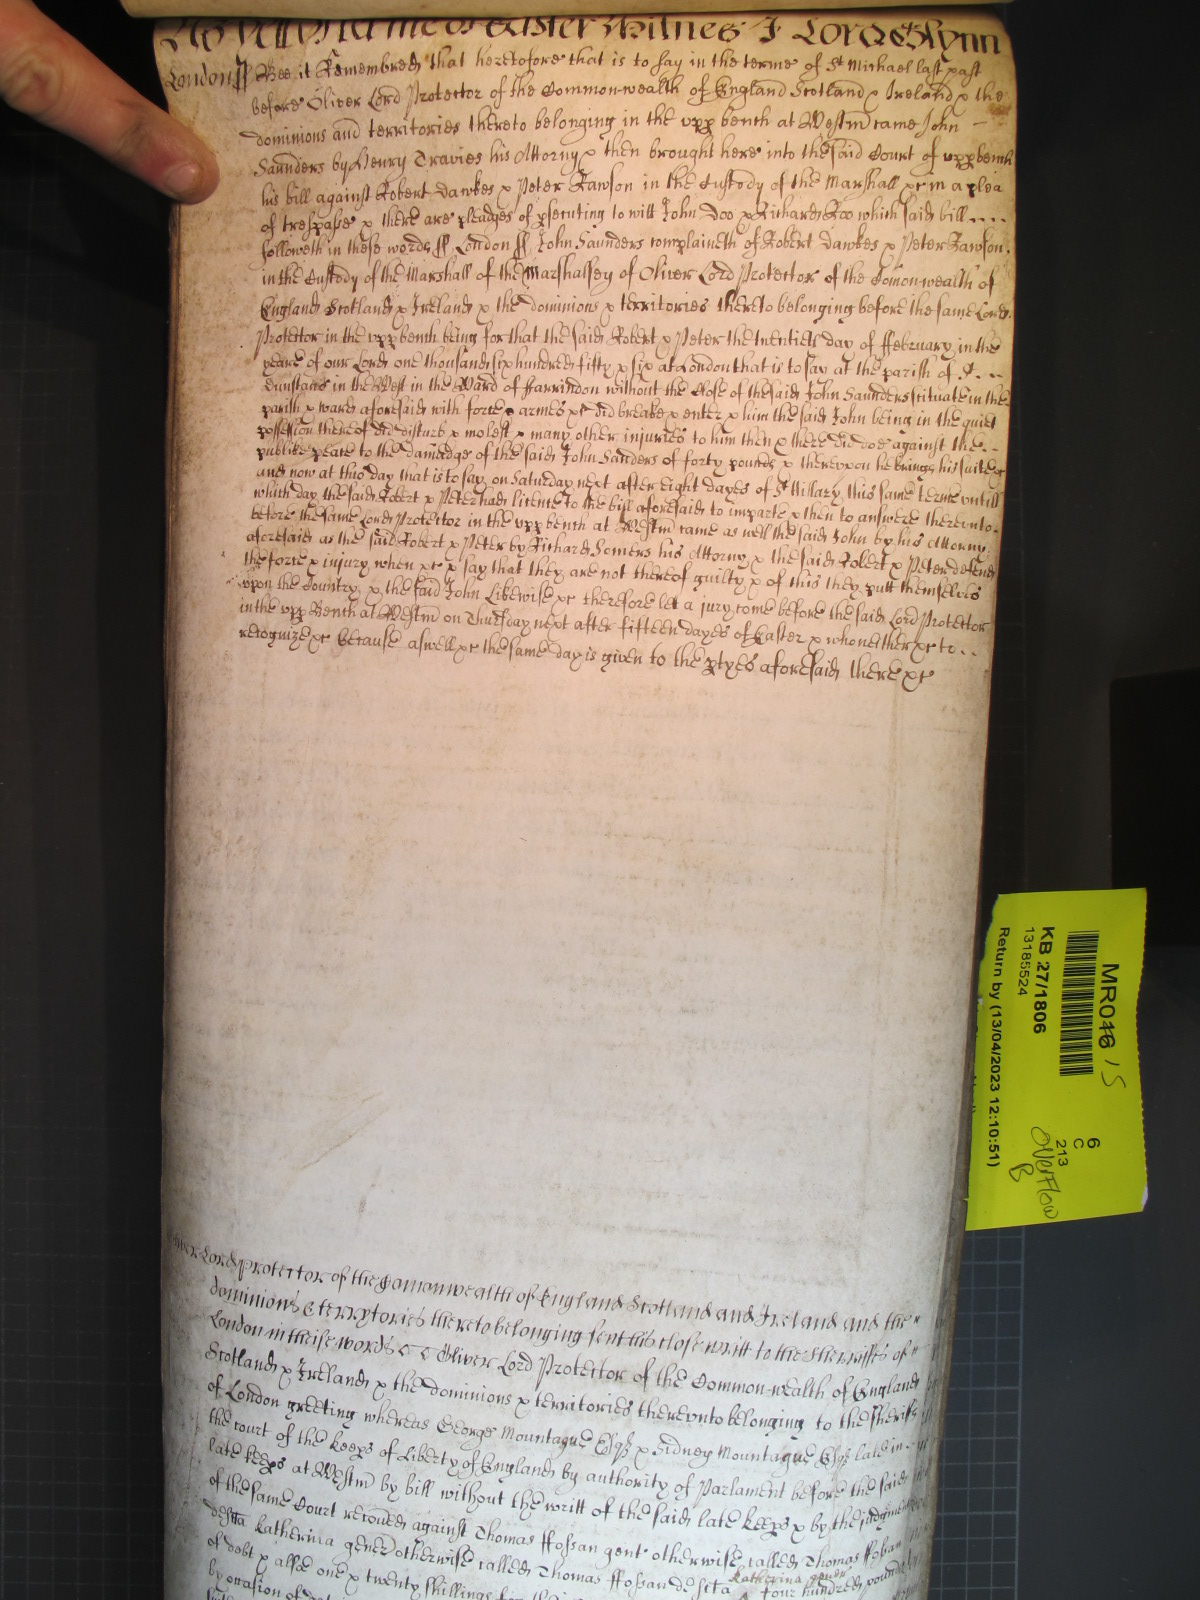 As yett of terme of Easter Witnes J Lord Glynn
London ss Bee it Remembred that heretofore that is to say in the terme of St Michael last past
before Oliver Lord Protector of the Common-wealth of England Scotland & Ireland & the
dominions and territories thereto belonging in the upp bench at Westm came John
Saunders by Henry Travies his Attorny & then brought here into the said Court of upp bench
his bill against Robert Dawkes & Peter Rawson in the Custody of the Marshall &c in a plea
of trespasse & there are pleadges of psecuting to witt John Doo & Richard Roo which said bill
followeth in these words ss London ss John Saunders complaineth of Robert Dawkes & Peter Rawson
in the Custody of the Marshall of the Marshalsey of Oliver Lord Protector of the Comon-wealth of
England Scotland & Ireland & the dominions & territories thereto belonging before the same Lord
Protector in the upp bench being for that the said Robert & Peter the twentieth day of ffebruary in the
yeare of our Lord one thousand six hundred fifty & six at London that is to say at the parish of St
Dunstans in the West in the Ward of ffarringdon without the Close of the said John Saunders scituate in the
parish & ward aforesaid with force & armes &c did breake & enter & him the said John being in the quiet
possession thereof did disturb & molest & many other injuries to him then & there did doe against the
publike peace to the damadge of the said John Sanders of forty pounds & thereupon he brings his suite &c
and now at this day that is to say on Saturday next after eight dayes of St Hillary this same terme untill
which day the said Robert & Peter had licence to the bill aforesaid to imparle & then to answere thereunto
before the same Lord Protector in the upp bench at Westm came as well the said John by his Attorny
aforesaid as the said Robert & Peter by Richard Somers his Attorny & the said Robert & Peter defend
the force & injury when &c & say that they are not thereof guilty & of this they putt themselves
upon the Country & the said John Likewise &c therefore let a jury come before the said Lord Protector
in the upp Bench at Westm on Thursday next after fifteen dayes of Easter & who neither &c to
recognize &c because aswell &c the same day is given to the ptyes aforesaid there &c
Oliver Lord protector of the Comonwealth of England Scotland and Ireland and the
dominions & terrytories thereto belonging sent his close writt to the Sherriffes of
London in theise words ss Oliver Lord Protector of the Common-wealth of England
Scotland & Ireland & the dominions & territories thereunto belonging to the sheriffs
of London greeting whereas George Mountague Esqr & Sidney Mountague Esqr late in
the court of the keeps of Liberty of England by authority of Parlament before the said
late keeps at Westm by bill without the writt of the said late keeps & by the judgment
of the same Court recoved against Thomas ffossan gent otherwise called Thomas ffossan
de Sta Katherina gener otherwise called Thomas ffossan de Scta Katherina gener four hundred pounds
of debt & alsoe one & twenty shillings
by occasion of
MR046 15
KB 27/1806
13185524
Return by (13/04/2023 12:10:51)
6
C
213
Overflow
B